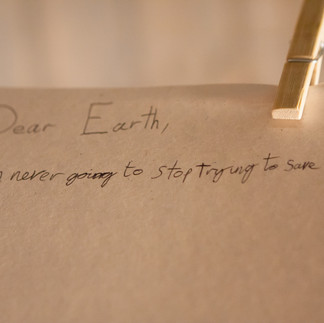 Dear Earth,
never going to stop trying to save